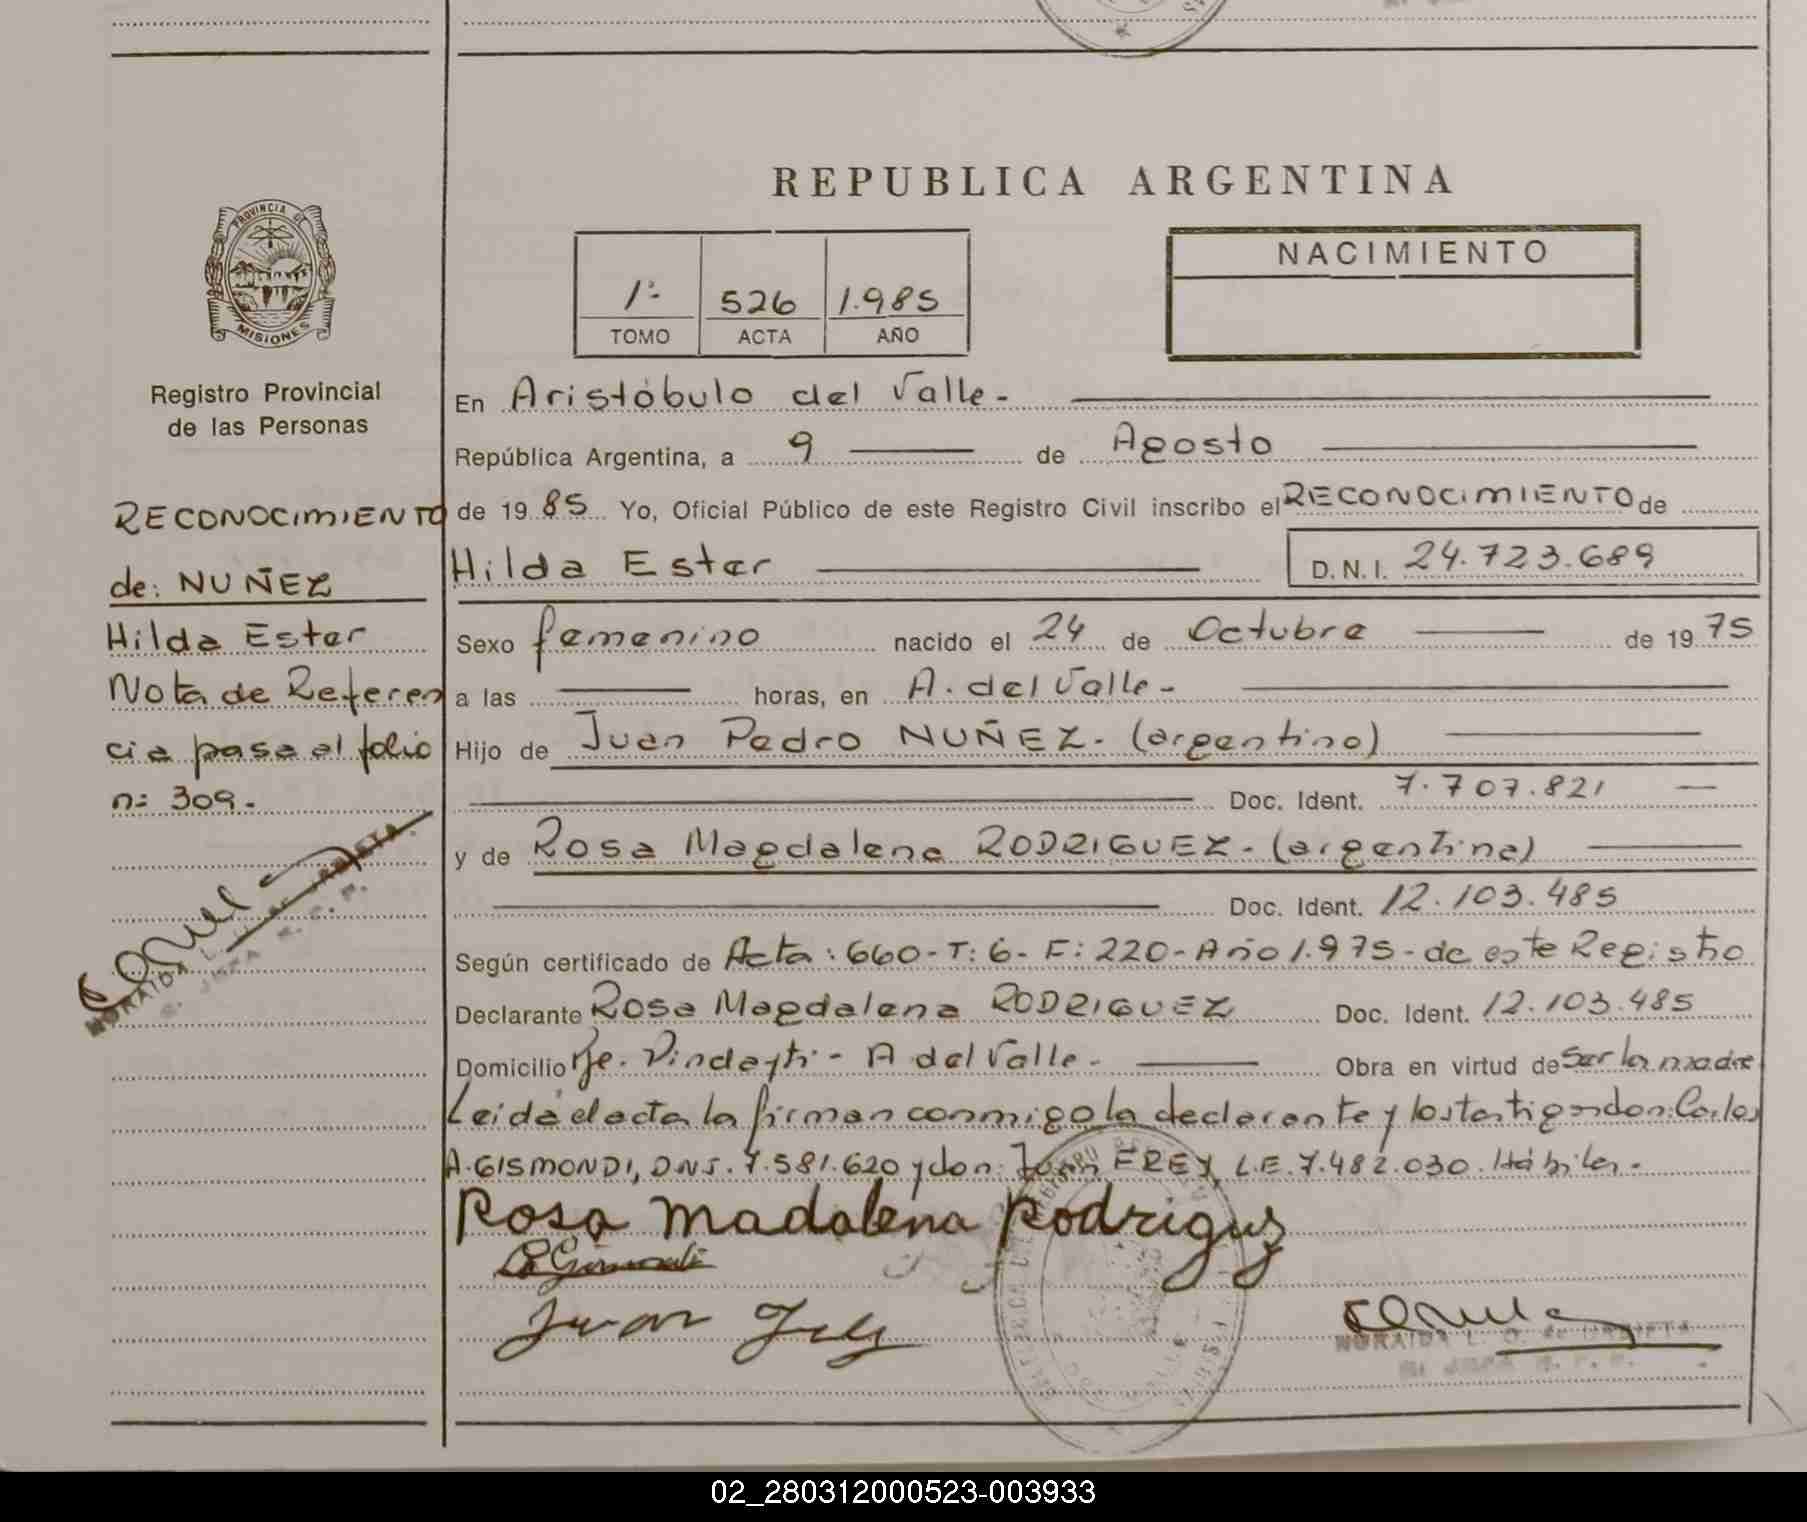 REPUBLICA ARGENTINA
PROVINCIA DE
MISIONES
Registro Provincial
de las Personas
RECONOCIMIENTO
de: NUÑEZ
Hilda Ester
Nota de Referen
cia pasa al folio
n= 309.-
NORAIDA L.
1º- 526 1.985
TOMO ACTA AÑO
NACIMIENTO
En Aristóbulo del Valle.-
República Argentina, a 9 de Agosto
de 1985 Yo, Oficial Público de este Registro Civil inscribo el RECONOCIMIENTO de
Hilda Ester D.N.I. 24.723.689
Sexo femenino nacido el 24 de Octubre de 1975
a las horas, en A. del Valle-
Hijo de Juan Pedro NUÑEZ. (argentino)
Doc. Ident. 7.707.821
y de Rosa Magdalena RODRIGUEZ. (argentina)
Doc. Ident. 12.103.485
Según certificado de Acta: 660-T: 6- F: 220-Año 1.975-de este Registro
Declarante Rosa Magdalena RODRIGUEZ Doc. Ident. 12.103.485
Domicilio Pje. Pindayti- A del Valle.- Obra en virtud de Ser la madre
Leida el acta la firman conmigo la declarante y los testigos don: Carlos
A. GISMONDI, DNI. 7.581.620 y don: Juan FREY, L.E. 7.482.030. Hábiles.-
Rosa madalena Rodriguz
Juan Frey
NORAIDA L. O. de URBIETA
02_280312000523-003933